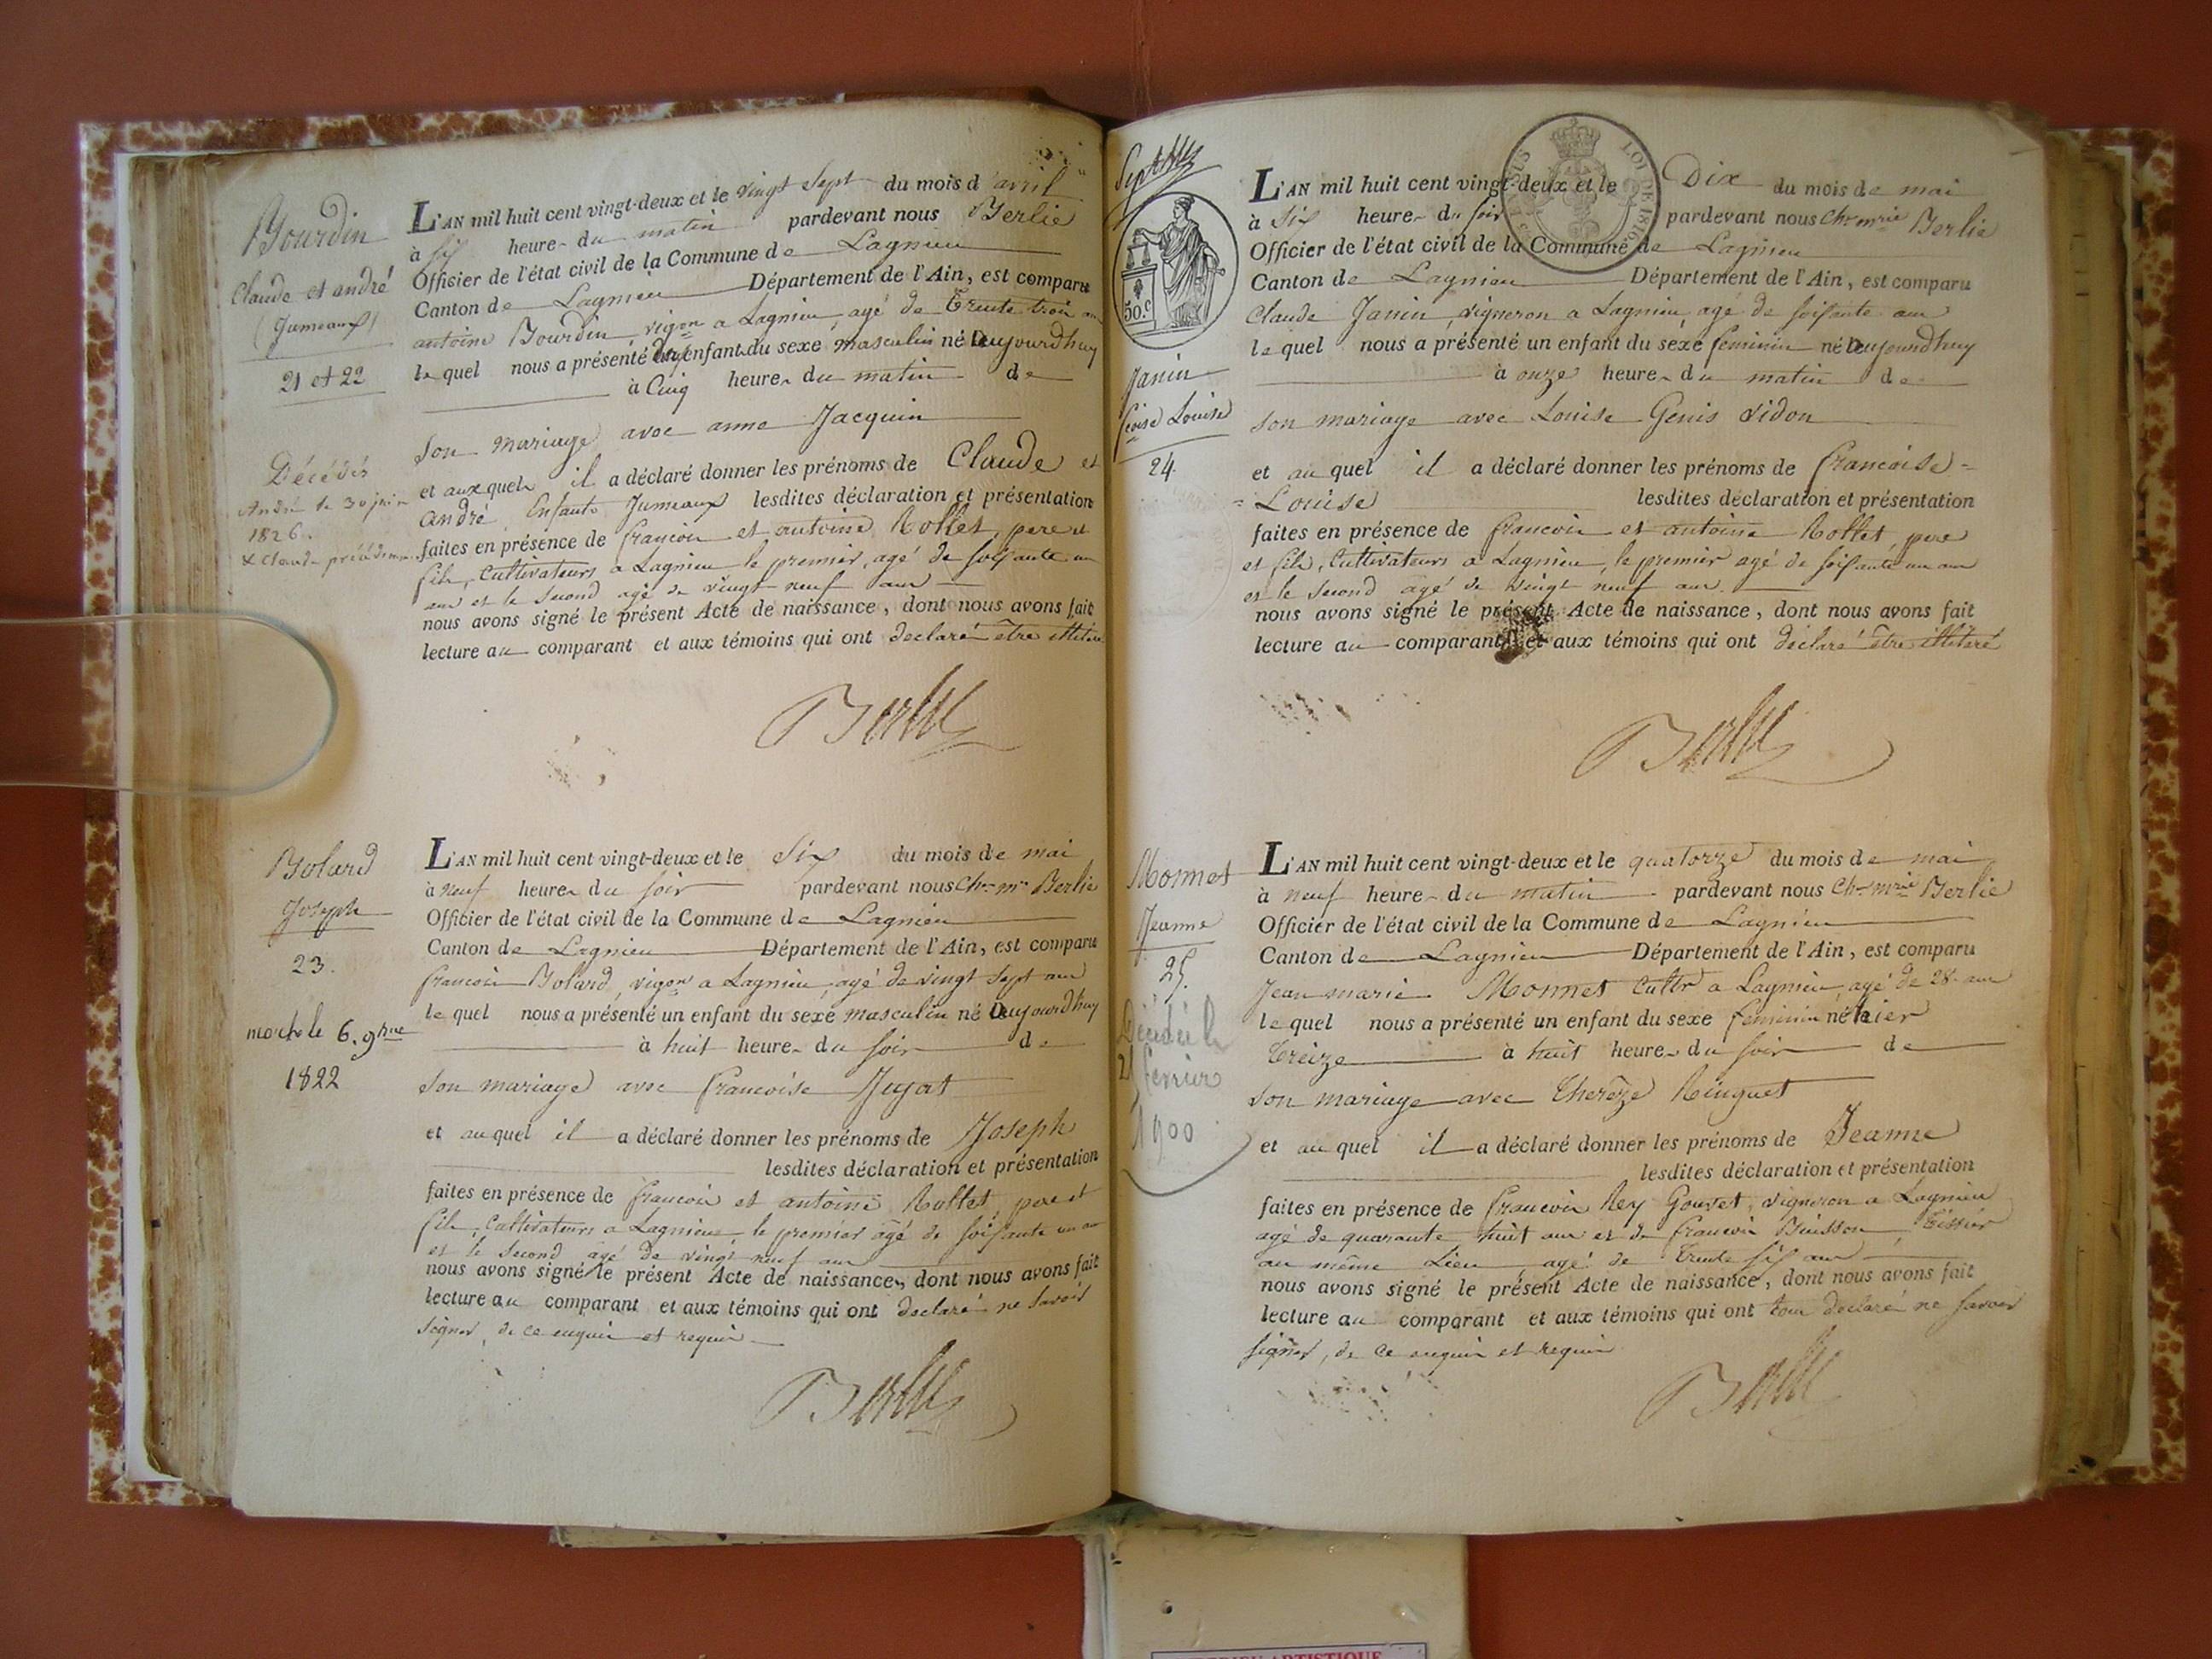 Bourdin
Claude et andré
(Jumeaux)
21 et 22
Décédés
André le 30 juin
1826.
& Claude précédemm.
L'AN mil huit cent vingt-deux et le vingt sept du mois d'avril
à six heures du matin pardevant nous Berlie
Officier de l'état civil de la Commune de Lagnieu
Canton de Lagnieu Département de l'Ain, est comparu
antoine Bourdin, vigon a Lagnieu, agé de Trente trois ans
lequel nous a présenté deux enfants du sexe masculin né aujourdhuy
à Cinq heures du matin de
Son mariage avec anne Jacquin
et auxquels il a déclaré donner les prénoms de Claude et
andré, Enfants Jumeaux lesdites déclaration et présentation
faites en présence de francois et antoine Rollet, pere et
fils, Cultivateurs a Lagnieu le premier, agé de soixante un
ans et le Second agé de vingt neuf ans
nous avons signé le présent Acte de naissance, dont nous avons fait
lecture au comparant et aux témoins qui ont declaré être illiteré
Berlie
Bolard
Joseph
23.
mort le 6. 9bre
1822
L'AN mil huit cent vingt-deux et le Six du mois de mai
à neuf heures du soir pardevant nous Chs mie Berlie
Officier de l'état civil de la Commune de Lagnieu
Canton de Lagnieu Département de l'Ain, est comparu
francois Bolard, vigon a Lagnieu, agé de vingt Sept ans
lequel nous a présenté un enfant du sexe masculin né aujourdhuy
à huit heures du soir de
Son mariage avec francoise Jujat
et auquel il a déclaré donner les prénoms de Joseph
lesdites déclaration et présentation
faites en présence de francois et antoine Rollet, pere et
fils, Cultivateurs a Lagnieu le premier agé de soixante un ans
et le Second agé de vingt neuf ans
nous avons signé le présent Acte de naissance, dont nous avons fait
lecture au comparant et aux témoins qui ont declaré ne savoir
Signer, de ce enquis et requis
Berlie
Septbre
50.c
Janin
fcoise Louise
24.
LOI DE 1816
L'AN mil huit cent vingt-deux et le Dix du mois de mai
à Six heures du soir pardevant nous Chs mrie Berlie
Officier de l'état civil de la Commune de Lagnieu
Canton de Lagnieu Département de l'Ain, est comparu
Claude Janin, vigneron a Lagnieu, agé de soixante ans
lequel nous a présenté un enfant du sexe feminin né aujourdhuy
à onze heures du matin de
Son mariage avec Louise Genis Vidon
et auquel il a déclaré donner les prénoms de francoise =
= Louise lesdites déclaration et présentation
faites en présence de francois et antoine Rollet, pere
et fils, Cultivateurs a Lagnieu, le premier agé de soixante un ans
et le Second agé de vingt neuf ans.
nous avons signé le présent Acte de naissance, dont nous avons fait
lecture au comparant et aux témoins qui ont déclaré être illiteré
Berlie
Monnet
Jeanne
25.
Décédée le
21 février
1900
L'AN mil huit cent vingt-deux et le quatorze du mois de mai
à neuf heures du matin pardevant nous Chs mrie Berlie
Officier de l'état civil de la Commune de Lagnieu
Canton de Lagnieu Département de l'Ain, est comparu
Jean marie Monnet Cultr a Lagnieu, agé de 28. ans
lequel nous a présenté un enfant du sexe feminin né hier
Treize à huit heures du soir de
Son mariage avec Thereze Ringuet
et auquel il a déclaré donner les prénoms de Jeanne
lesdites déclaration et présentation
faites en présence de francois Rey Gouvet, vigneron a Lagnieu
agé de quarante huit ans et de francois Buisson, Tissier
au même Lieu, agé de Trente six ans
nous avons signé le présent Acte de naissance, dont nous avons fait
lecture au comparant et aux témoins qui ont tous declaré ne savoir
signer, de ce enquis et requis
Berlie
ARTISTIQUE